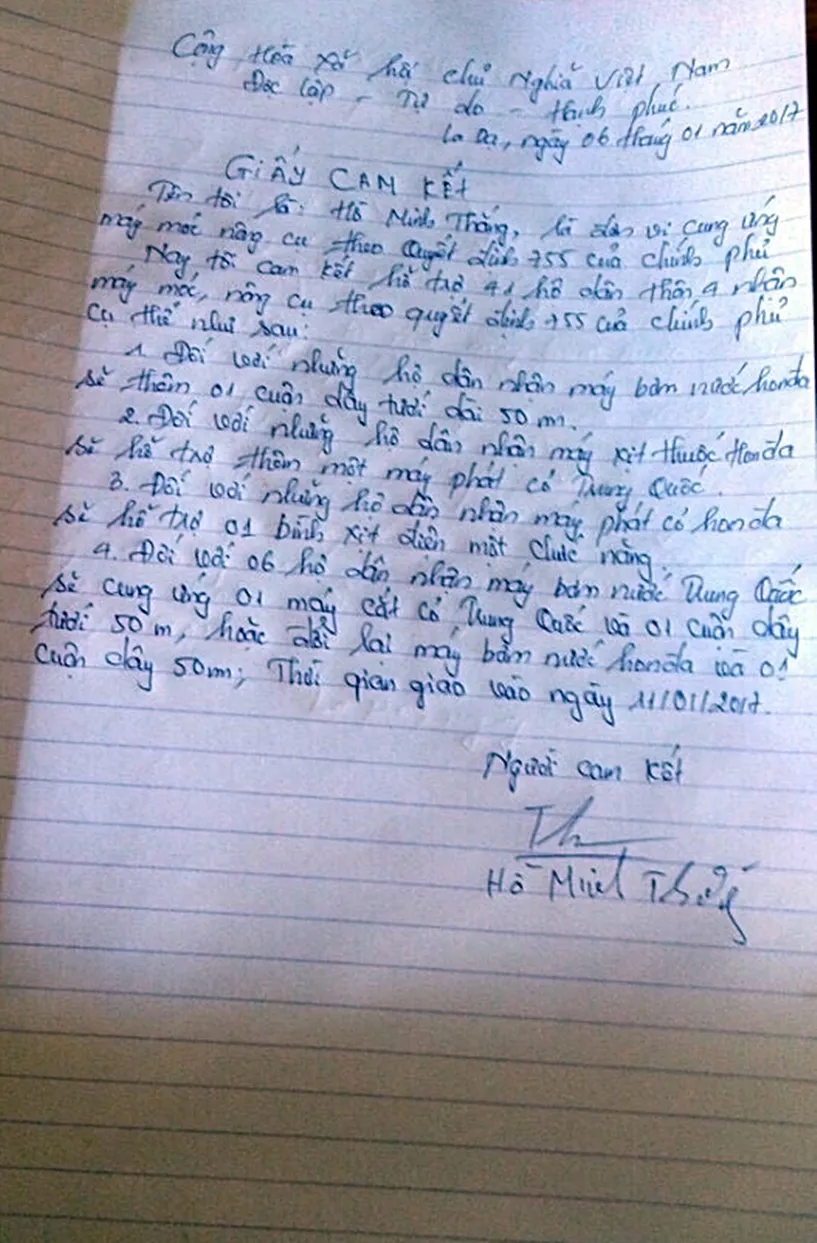 Cộng Hòa Xã hội chủ Nghĩa Việt Nam
Độc lập - Tự do - Hạnh phúc.
La Dạ, ngày 06 tháng 01 năm 2017
GIẤY CAM KẾT
Tên tôi là: Hồ Minh Thắng, là đơn vị cung ứng
máy móc nông cụ theo Quyết định 755 của chính phủ
Nay tôi cam kết hỗ trợ 41 hộ dân thôn 4 nhận
máy móc, nông cụ theo quyết định 755 của chính phủ
cụ thể như sau:
1. Đối với những hộ dân nhận máy bơm nước honda
sẽ thêm 01 cuộn dây tưới dài 50 m.
2. Đối với những hộ dân nhận máy xịt thuốc Honda
sẽ hỗ trợ thêm một máy phát cỏ Trung Quốc.
3. Đối với những hộ dân nhận máy phát cỏ honda
sẽ hỗ trợ 01 bình xịt điện một chức năng.
4. Đối với 06 hộ dân nhận máy bơm nước Trung Quốc
sẽ cung ứng 01 máy cắt cỏ Trung Quốc và 01 cuộn dây
tưới 50 m, hoặc đổi lại máy bơm nước honda và 01
cuộn dây 50m; Thời gian giao vào ngày 11/01/2017.
Người cam kết
Th
Hồ Minh Thắng